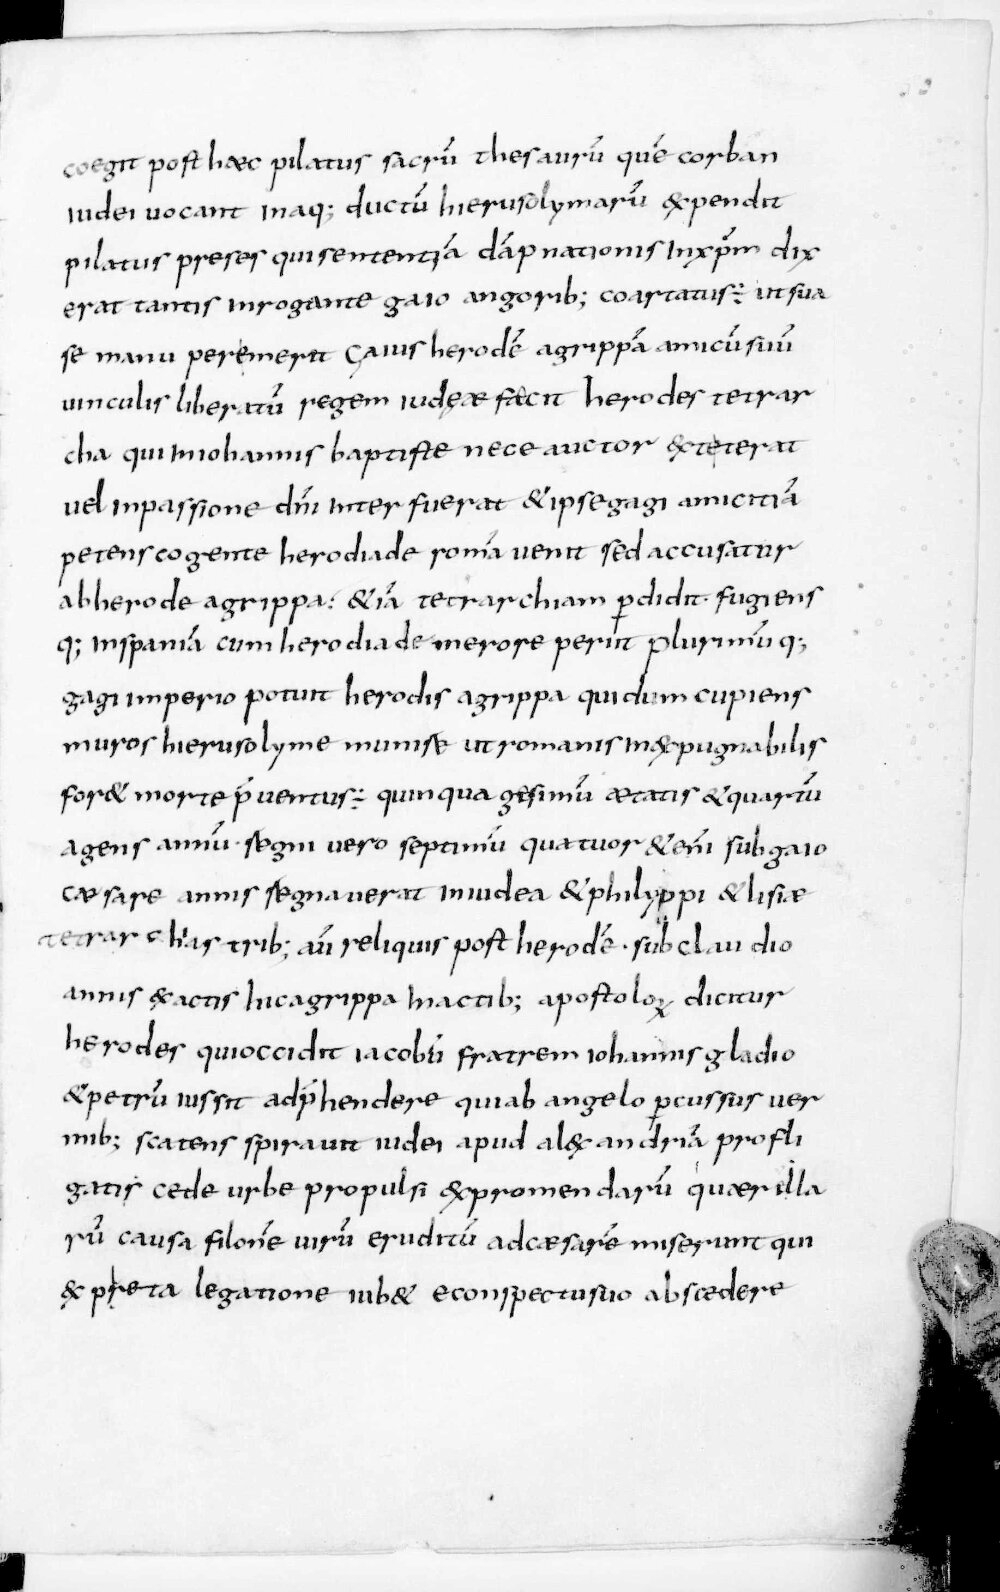 coegit post hæc pilatus sacrū thesaurū quē corban
iudei uocant inaq; ductū hierusolymarū &pendit
pilatus preses qui sententiā dāpnationis inxp̄m dix
erat tantis inrogante gaio angorib; coartatus: ut sua
se manu peremerit Gaius herodē agrippā amicū suū
uinculis liberatū regem iudęæ facit herodes tetrar
cha qui iniohannis baptiste nece auctor exteterat
uel inpassione dn̄i inter fuerat & ipse gagi amicitiā
petens cogente herodiade romā uenit sed accusatur
abherode agrippa: & iā tetrarchiam p̱didit. fugiens
q; inspaniā cum herodiade merore periit Plurimū q;
gagi imperio potuit herodis agrippa qui dum cupiens
muros hierusolyme munise ut romanis inexpugnabilis
for& morte p̄uentus: quinqua gesimū ætatis & quartū
agens annū. segni uero septimū quatuor & em̄ sub gaio
cæsare annis segnauerat iniudea & philyppi & lisiæ
tetrarchias trib; aū reliquis post herodē. sub claudio
annis exactis hic agrippa inactib; apostoloꝝ dicitur
herodes qui occidit iacobū fratrem iohannis gladio
& petrū iussit adp̄hendere qui ab angelo p̱cussus uer
mib; scatens spirauit iudei apud alexandriā profli
gatis cede urbe propulsi expromendarū quærilla
rū causa filonē uirū eruditū adcæsarē miserunt qui
expreta legatione iub& econspectusuo abscedere